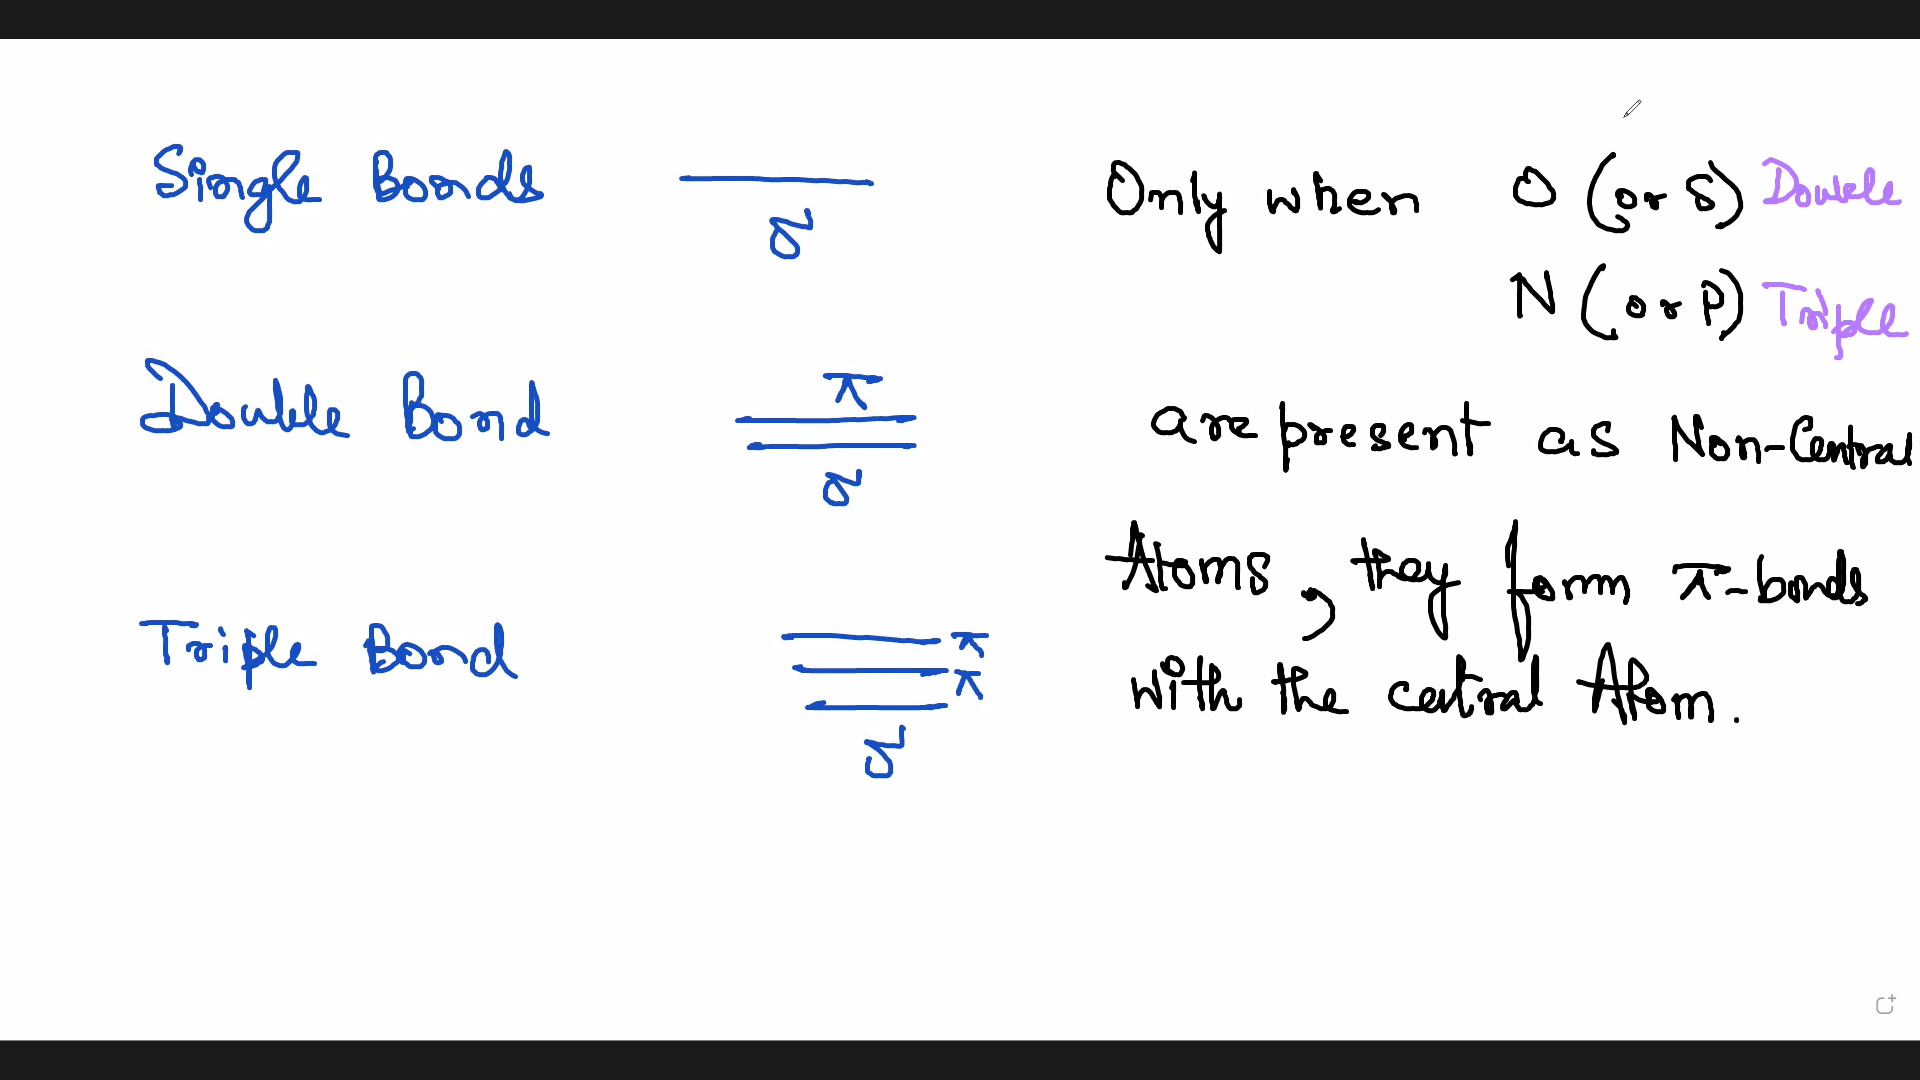 Single Bonds
σ
Double Bond
π
σ
Triple Bond
π
π
σ
Only when O (or S) Double
N (or P) Triple
are present as Non-Central
Atoms, they form π-bonds
with the central Atom.